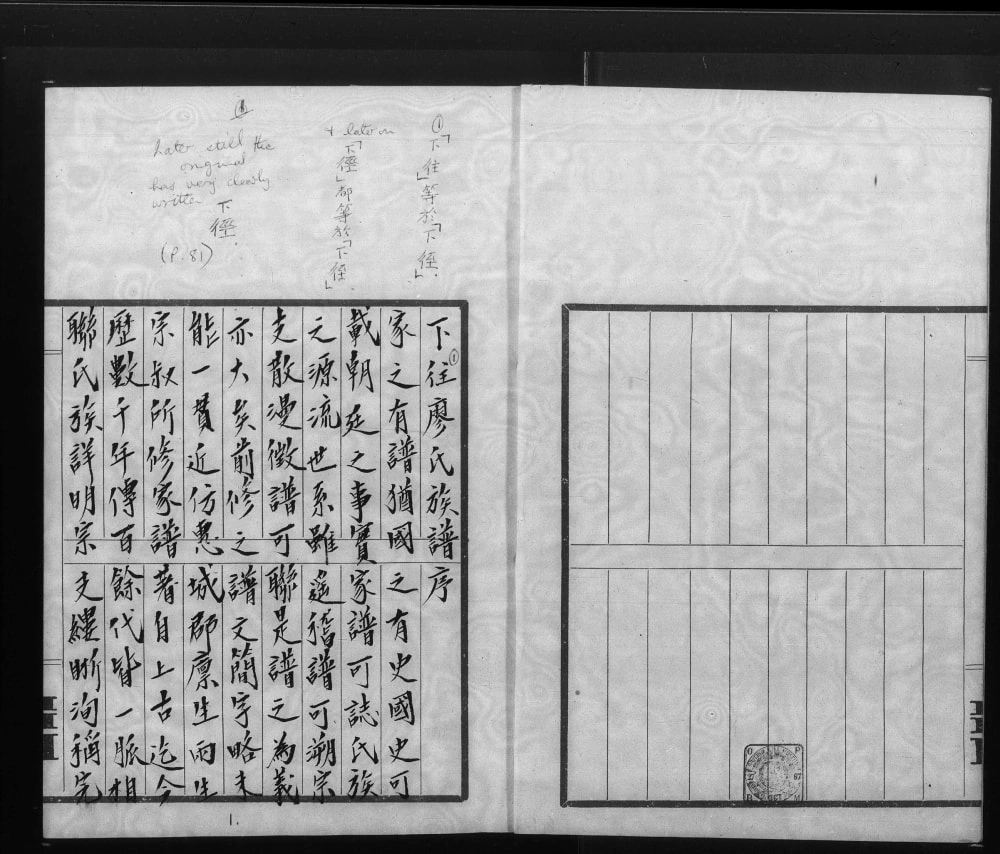 ①「下往」等於「下徑」.
& later on
「下徑」都等於「下徑」
①
Later still the
original
has very clearly
written
下徑.
(P. 81)
下往①廖氏族譜序
家之有譜猶國之有史國史可
載朝廷之事實家譜可誌氏族
之源流世系雖遥稽譜可溯宗
支散漫徵譜可聯是譜之為義
亦大矣前修之譜文簡字略未
能一貫近仿惠城郡廪生雨生
宗叔所修家譜著自上古迄今
歷數千年傳百餘代皆一脈相
聯氏族詳明宗支縷晣洵稱完
1.